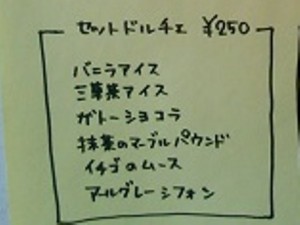 セットドルチェ ¥250
バニラアイス
三草茶アイス
ガトーショコラ
抹茶のマーブルパウンド
イチゴのムース
アールグレーシフォン